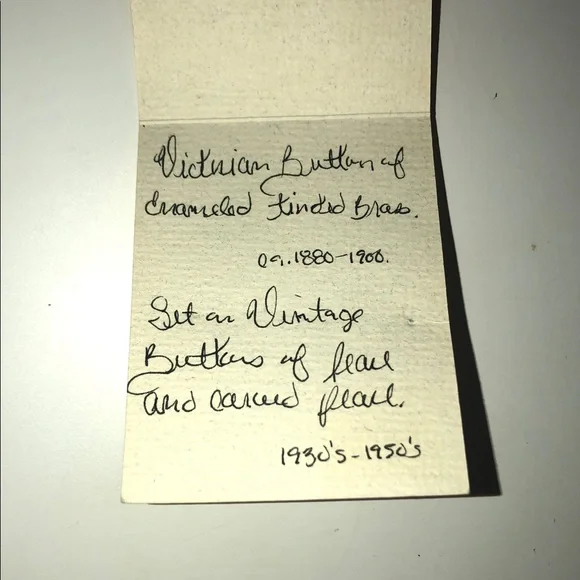 Victorian Button of
Enameled Tinded Brass.
ca. 1880-1900.
Set on Vintage
Buttons of pearl
and carved pearl.
1930's-1950's